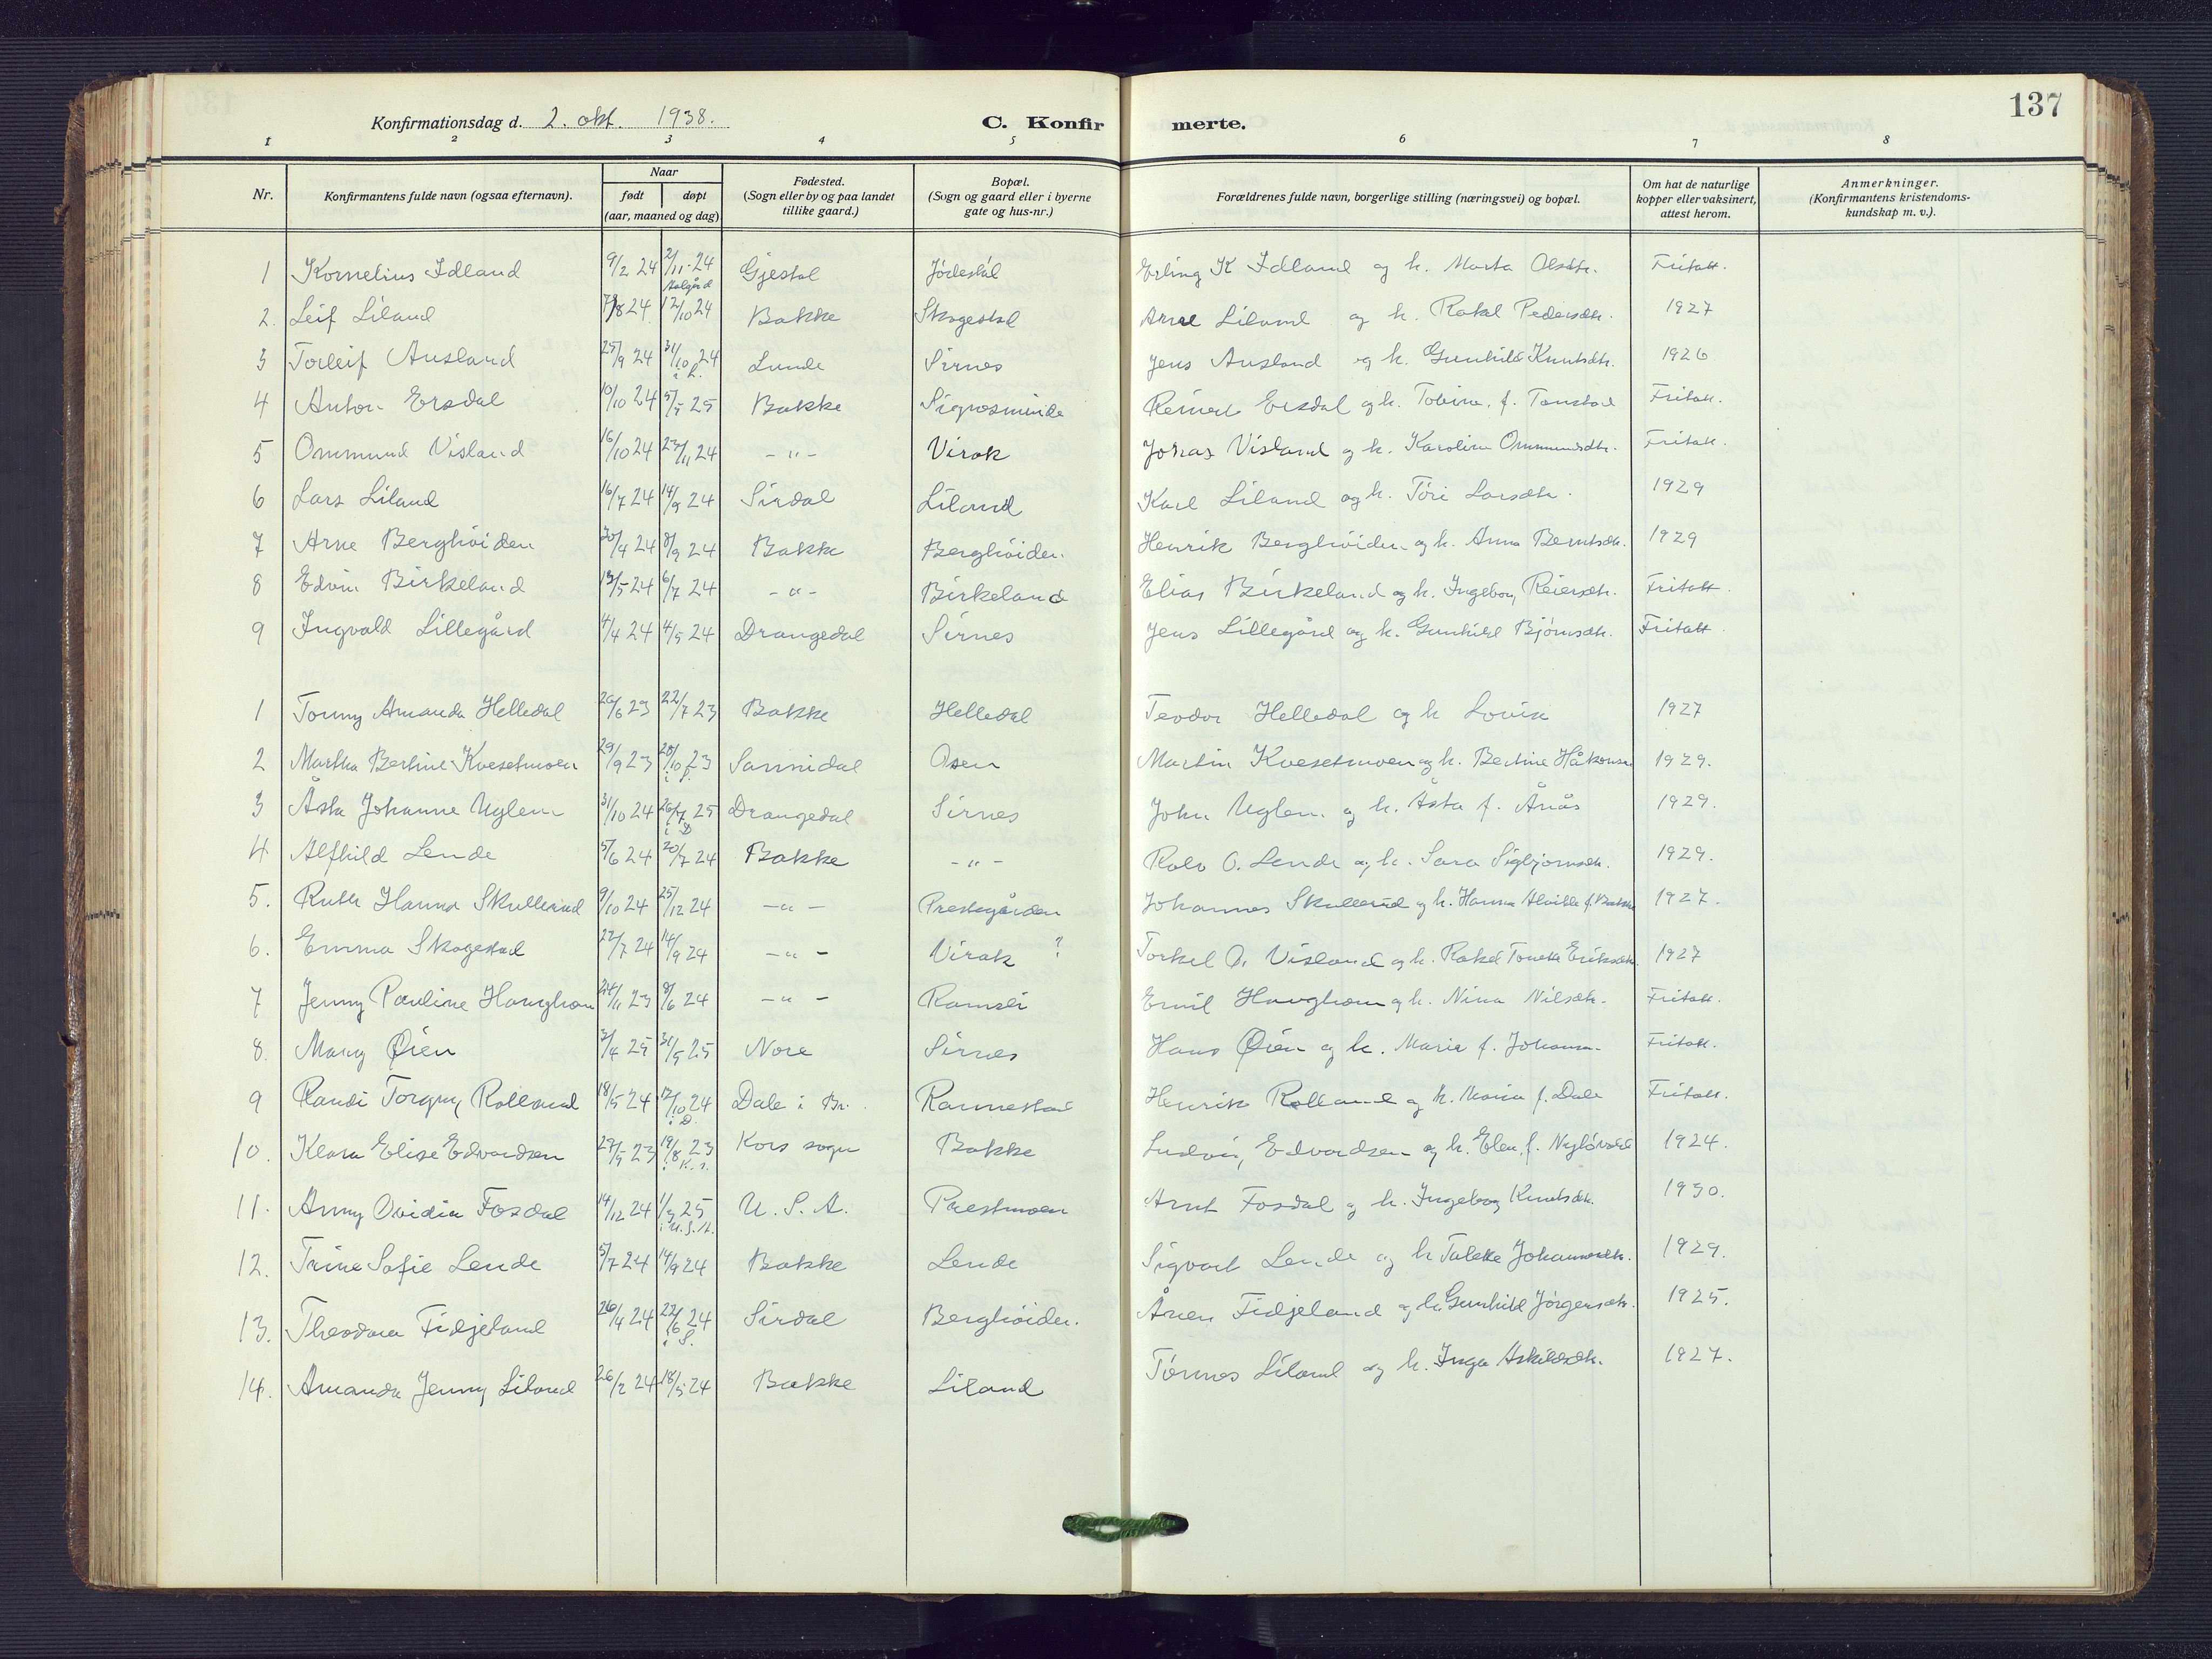 137
Konfirmationsdag d. 2. okt. 1938.
C. Konfirmerte.
1 2 3 4 5 6 7 8
Nr. Konfirmantens fulde navn (ogsaa efternavn). Naar født døpt (aar, maaned og dag) Fødested. (Sogn eller by og paa landet tillike gaard.) Bopæl. (Sogn og gaard eller i byerne gate og hus-nr.) Forældrenes fulde navn, borgerlige stilling (næringsvei) og bopæl. Om hat de naturlige kopper eller vaksinert, attest herom. Anmerkninger. (Konfirmantens kristendomskundskap m. v.).
1 Kornelius Idland 9/2 24 2/11-24 Aalgård Gjestal Jødestøl Erling K Idland og h. Marta Olsdtr. Fritatt.
2. Leif Liland 7/8 24 12/10 24 Bakke Skogestad Arne Liland og h. Rakel Pedersdtr. 1927
3 Torleif Ausland 25/9 24 31/10 24 i L. Lunde Sirnes Jens Ausland og h. Gunhild Knutsdtr. 1926
4 Anton Ersdal 10/10 24 5/5 25 Bakke Signosminde Reinert Ersdal og h. Tobine, f. Tonstad Fritatt.
5 Ommund Visland 16/10 24 23/11 24 - " - Virak Jonas Visland og h. Karoline Ommundsdtr. Fritatt.
6 Lars Liland 16/7 24 14/9 24 Sirdal Liland Karl Liland og h. Tori Larsdtr. 1929
7 Arne Berghøiden 30/4 24 8/9 24 Bakke Berghøiden. Henrik Berghøiden og h. Anna Berntsdtr. 1929
8 Edvin Birkeland 13/5-24 6/7 24 - " - Birkeland Elias Birkeland og h. Ingeborg Reiersdtr. Fritatt.
9 Ingvald Lillegård 4/4 24 4/5 24 Drangedal Sirnes Jens Lillegård og h. Gunhild Bjørnsdtr. Fritatt.
1 Tonny Amanda Helledal 26/6 23 22/7 23 Bakke Helledal Teodor Helledal og h Lovise 1927
2 Martha Bertine Kvesetmoen 29/9 23 28/10 23 i S. Sannidal Osen Martin Kvesetmoen og h. Bertine Håkonsen 1929.
3 Åsta Johanne Uglem 31/10 24 26/7 25 i D Drangedal Sirnes John Uglem. og h. Åsta f. Ånås 1929.
4 Alfhild Lende 5/6 24 20/7 24 Bakke - " - Rolv O. Lende og h. Sara Sigbjørnsdtr. 1929.
5. Ruth Hanna Skullerud 9/10 24 25/12 24 - " - Prestegården Johannes Skullerud og h. Hanna Alvilde f. Bakke 1927.
6. Emma Skogestad 22/7 24 14/9 24 - " - Virak ? Torkel O. Visland og h. Rakel Tonette Eriksdtr. 1927
7 Jenny Pauline Haughom 24/11 23 8/6 24 - " - Ramsli Emil Haughom og h. Nina Nilsdtr. Fritatt.
8. Mary Øien 3/4 25 31/5 25 Nore Sirnes Hans Øien og h. Marie f. Johansen. Fritatt.
9 Randi Torguny Rolland 18/5 24 12/10 24 i D. Dale i Br. Rannestad Henrik Rolland og h. Maria f. Dale Fritatt.
10. Klara Elise Edvardsen 27/5 23 19/8 23 i K. s. Kors sogn Bakke Ludvig Edvardsen og h. Elen, f. Nygårdvold 1924.
11. Anny Ovidia Fosdal 14/12 24 1/3 25 i U.S.A. U. S. A. Prestmoen Arnt Fosdal og h. Ingeborg Knutsdtr. 1930.
12. Trine Sofie Lende 5/7 24 14/9 24 Bakke Lende Sigvart Lende og h Talette Johannesdtr. 1929.
13. Theodora Fidjeland 26/4 24 22/6 24 i S. Sirdal Berghøiden. Ånen Fidjeland og h. Gunhild Jørgensdtr. 1925.
14. Amanda Jenny Liland 26/2 24 18/5 24 Bakke Liland Tønnes Liland og h. Inga Askildsdtr. 1927.